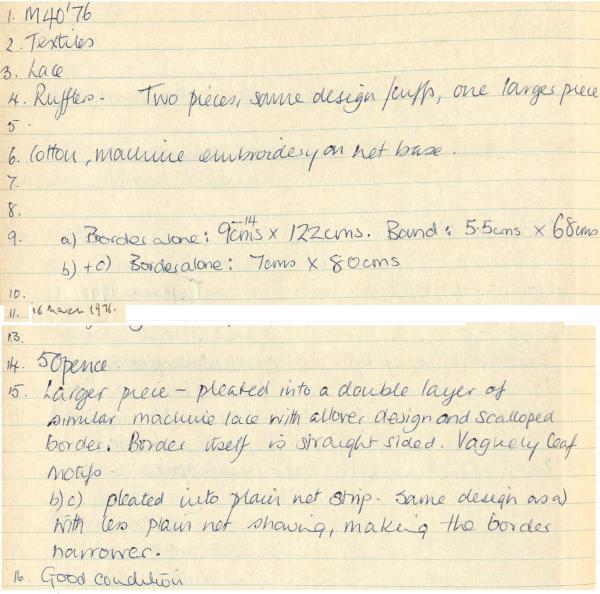 1. M40'76
2. Textiles
3. Lace
4. Ruffles. Two pieces, same design /cuffs, one larger piece
5.
6. Cotton, machine embroidery on net base.
7.
8.
9. a) Border alone: 9cms-14 x 122cms. Band: 5.5cms x 68cms
b) + c) Border alone: 7cms x 80cms
10.
11. 16 March 1976.
13.
14. 50pence.
15. Larger piece - pleated into a double layer of
similar machine lace with allover design and scalloped
border. Border itself is straight sided. Vaguely leaf
motifs
b)c) pleated into plain net strip. Same design as a)
with less plain net showing, making the border
narrower.
16. Good condition